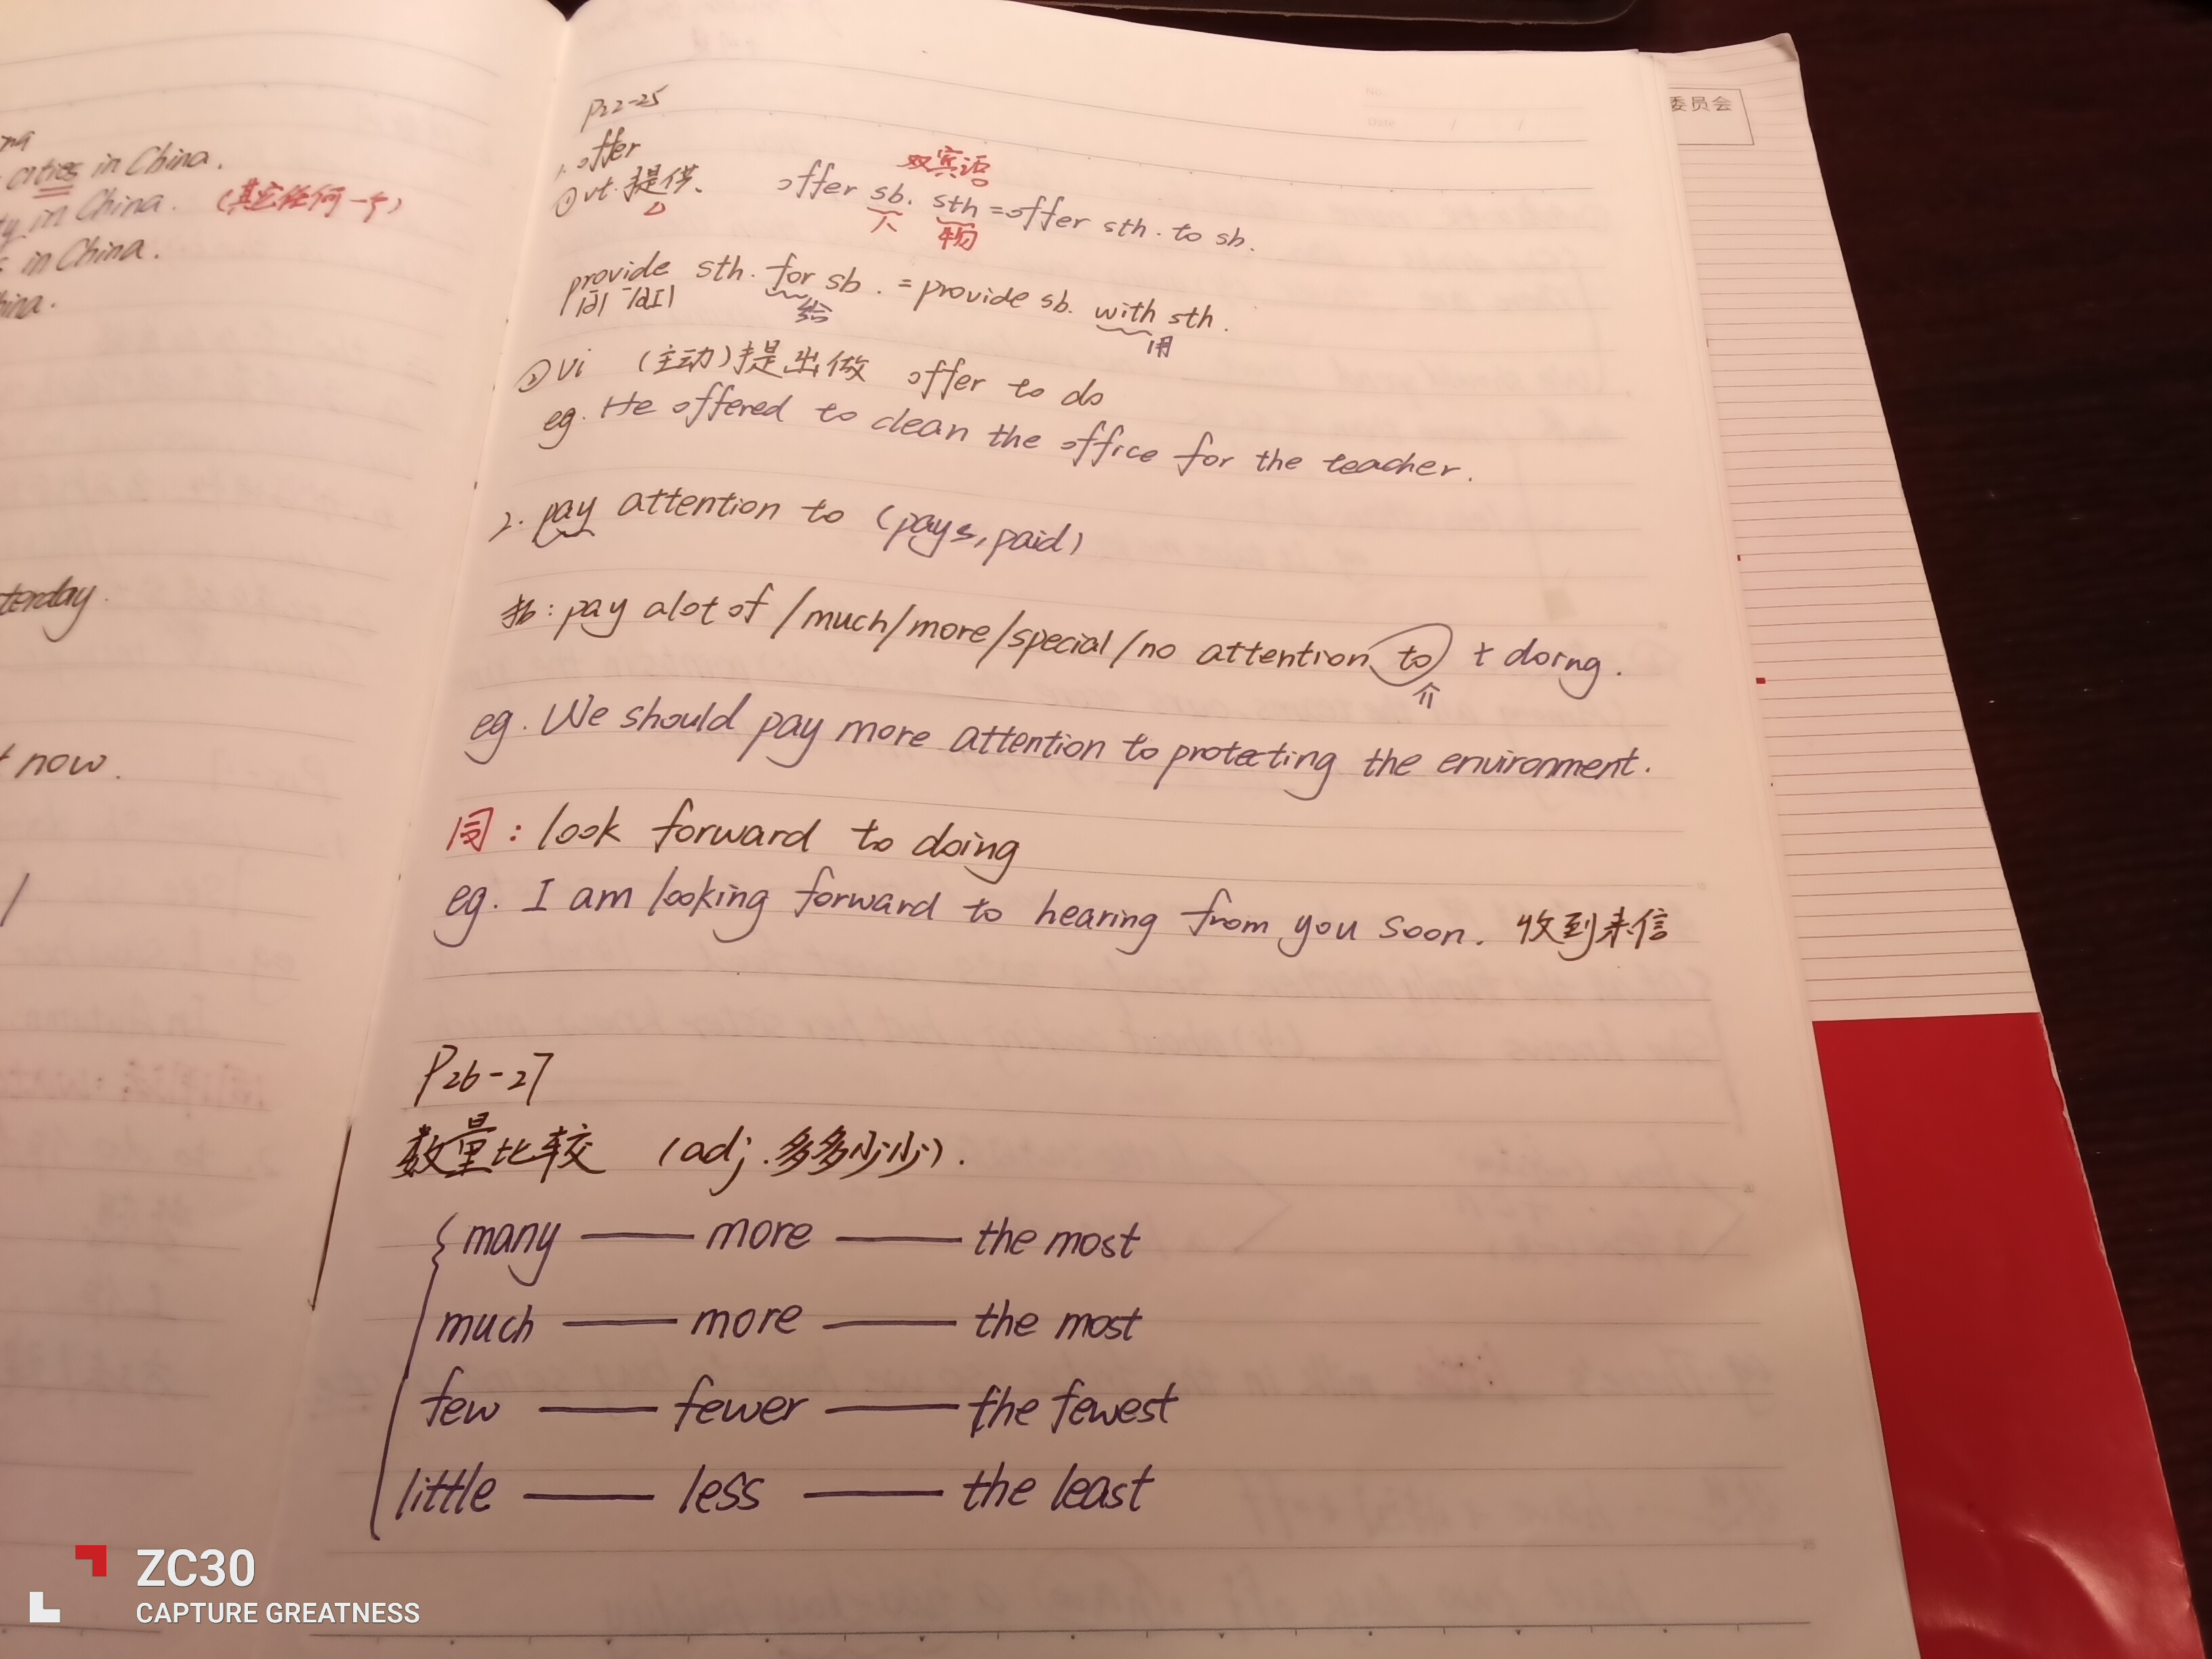 cities in China.
in China. (其它任何一个)
in China.
now.
P22-25
1. offer
①vt.提供、 offer sb. sth =offer sth. to sb.
双宾语
人 物
provide sth. for sb. = provide sb. with sth.
给 用
②vi (主动)提出做 offer to do
eg. He offered to clean the office for the teacher.
2. pay attention to (pays, paid)
拓: pay alot of /much/more/special/no attention to + doing.
介
eg. We should pay more attention to protecting the environment.
同: look forward to doing
eg. I am looking forward to hearing from you soon. 收到来信
P26-27
数量比较 (adj.多多少少).
many —— more —— the most
much —— more —— the most
few —— fewer —— the fewest
little —— less —— the least
委员会
ZC30
CAPTURE GREATNESS